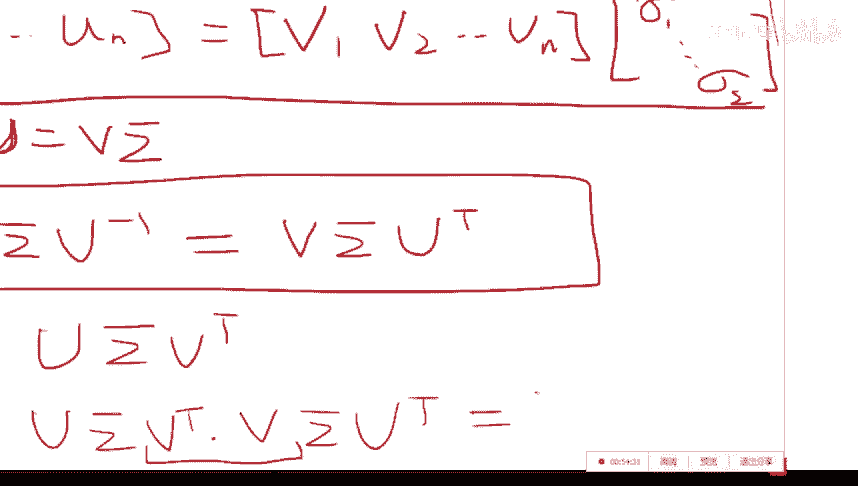 ·· uₙ] = [V₁ V₂ ·· Vₙ] [σ₁ ⋱ σ₂]
= VΣ
ΣU⁻¹ = VΣUᵀ
UΣVᵀ
UΣVᵀ·VΣUᵀ =